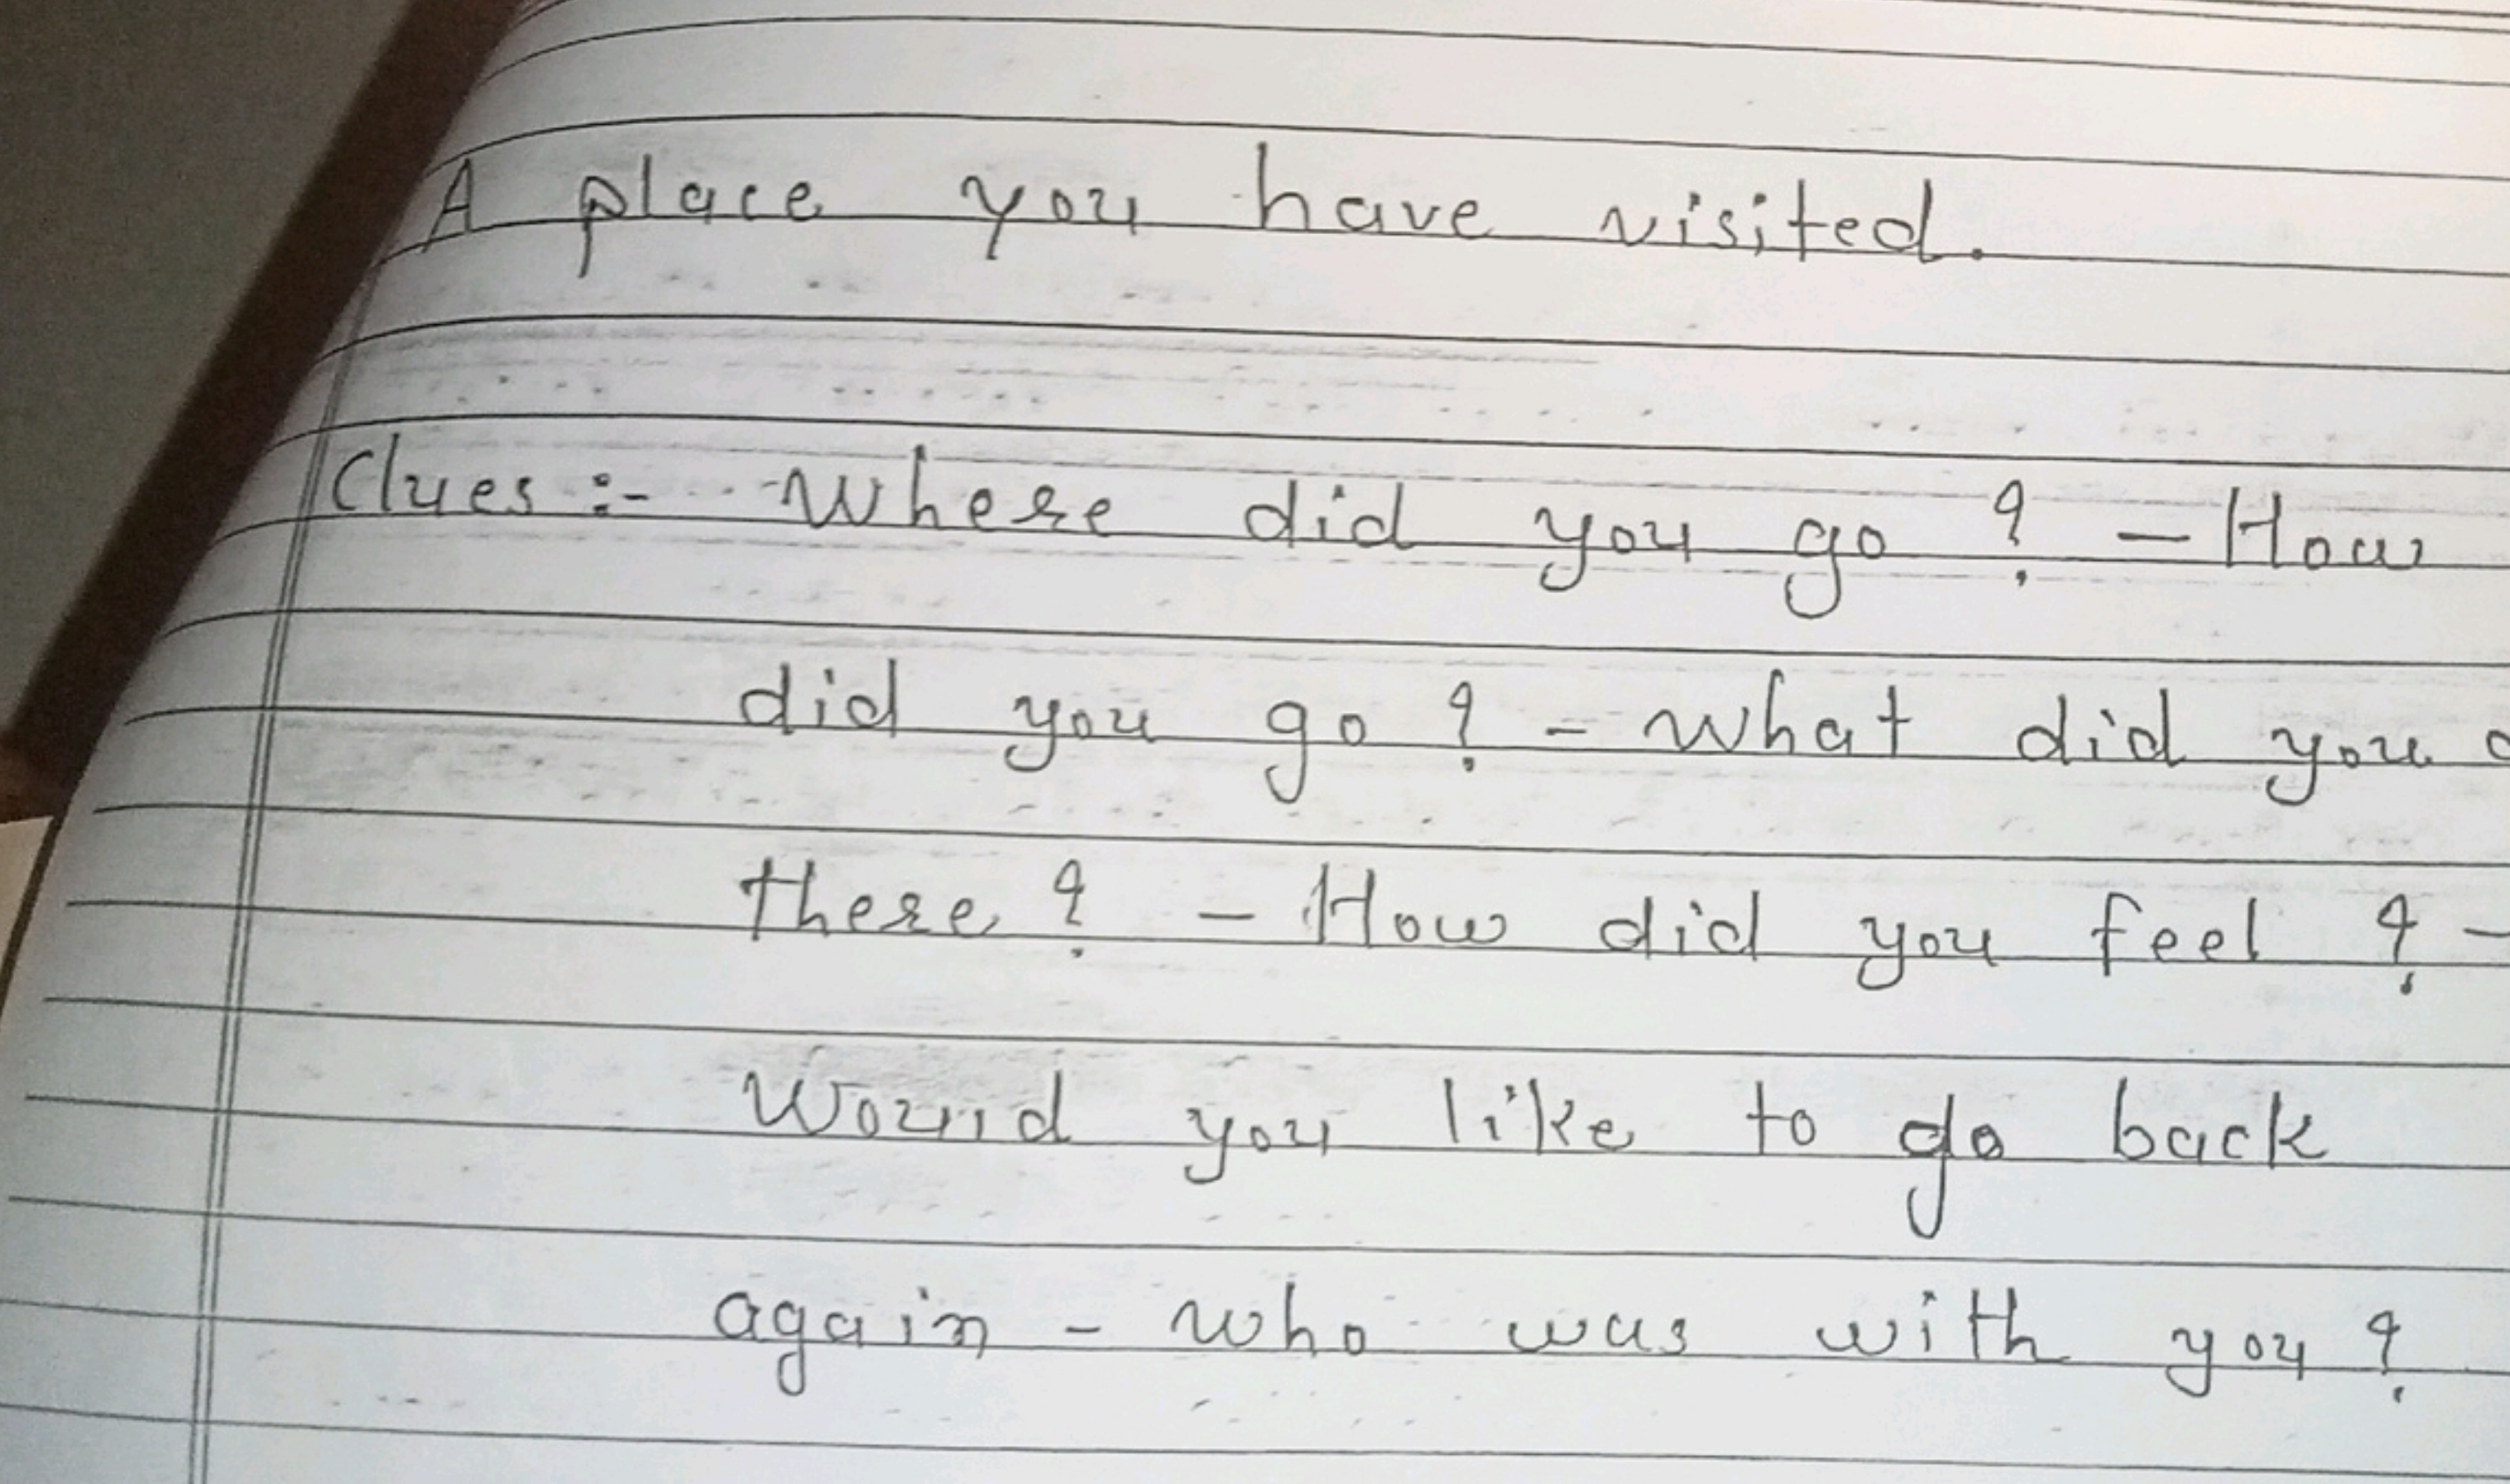 A place you have visited.
Clues :- Where did you go ? - How
did you go ? - What did you
there ? - How did you feel ? -
Would you like to go back
again - who was with you ?